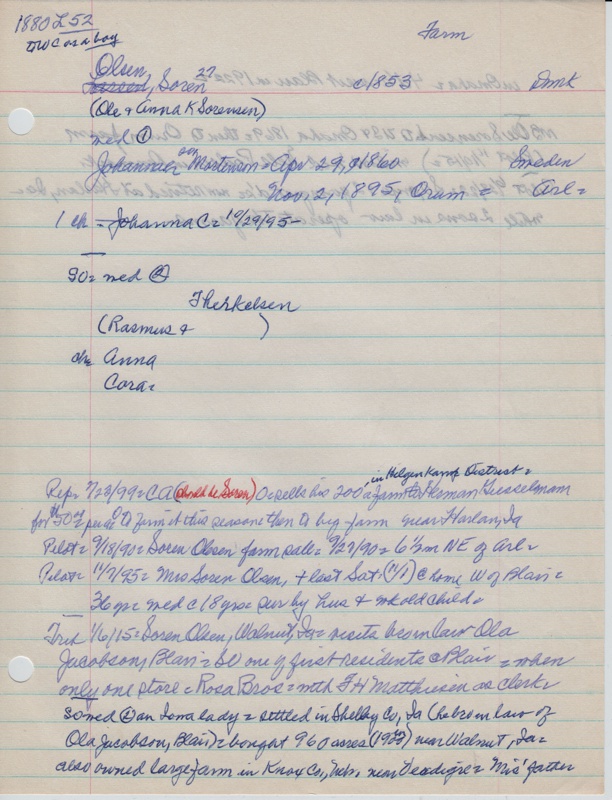 1880 L 52
DWC as a boy
Farm
Olsen, Soren 27 c1853 Dmk
(Ole & Anna K Sorensen)
med ①
Johannah Mortensen = Apr 29, 1860 Sweden
Nov. 2, 1895, Orum = Arl=
1 ch = Johanna C = 10/29/95 -
SO= med ②
Therkelsen
(Rasmus & )
ch= Anna
Cora=
in Helgenkamp District=
Rep= 7/28/99= CA (should be Soren) O= sells his 200 a farm to Herman Giesselmann
for $50 per= O to farm it this season then to big farm near Harlan, Ia
Pilot= 9/18/90= Soren Olsen farm sale= 9/27/90= 6½ m NE of Arl=
Pilot= 11/7/95= Mrs Soren Olsen, + last Sat= (11/2) @ home W of Blair=
36 yr= med c 18 yrs= sur by hus & mkold child=
Trib 1/6/15= Soren Olsen, Walnut, Ia= visits bro in law Ola
Jacobson, Blair= SO one of first residents @ Blair = when
only one store = Rosa Bros= with FH Matthiesen as clerk=
SO med ② an Iowa lady = settled in Shelby Co, Ia (he bro in law of
Ola Jacobson, Blair) = bought 960 acres near Walnut, Ia=
also owned large farm in Knox Co., Neb., near Verdigre= Mrs' father